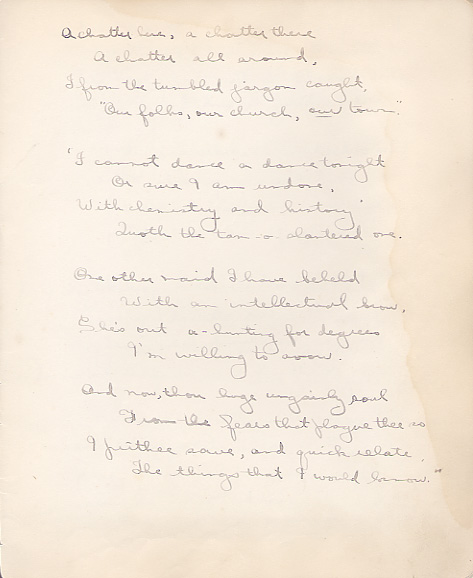 A chatter here, a chatter there
A chatter all around,
I from the tumbled jargon caught,
"Our folks, our church, our town".
'I cannot dance a dance tonight
Or sure I am undone,
With chemistry and history'
Quoth the tam-o-shantered one.
One other maid I have beheld
With an intellectual brow,
She's out a-hunting for degrees
I'm willing to avow.
And now, thou huge ungainly soul
From the fears that plague thee so
I prithee save, and quick relate,
The things that I would know."